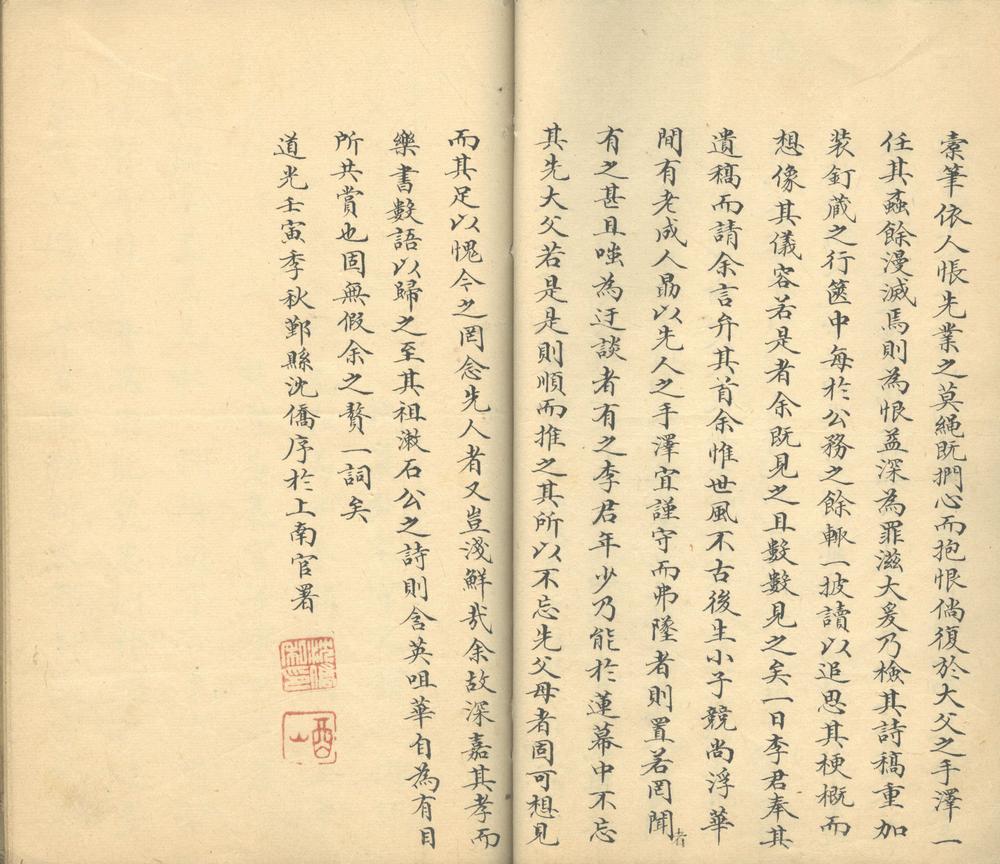 橐筆依人悵先業之莫繩既捫心而抱恨倘復於大父之手澤一
任其蟲餘漫滅焉則為恨益深為罪滋大爰乃檢其詩稿重加
装釘蔵之行篋中每於公務之餘輙一披讀以追思其梗概而
想像其儀容若是者余既見之且數數見之矣一日李君奉其
遺稿而請余言弁其首余惟世風不古後生小子競尚浮華
間有老成人勗以先人之手澤宜謹守而弗墜者則置若罔聞者
有之甚且嗤為迂談者有之李君年少乃能於蓮幕中不忘
其先大父若是是則順而推之其所以不忘先父母者固可想見
而其足以愧今之罔念先人者又豈淺鮮㢤余故深嘉其孝而
樂書數語以歸之至其祖漱石公之詩則含英咀華自為有目
所共賞也固無假余之贅一詞矣
道光壬寅季秋鄞縣沈僑序於上南官署
沈僑私印
酉山